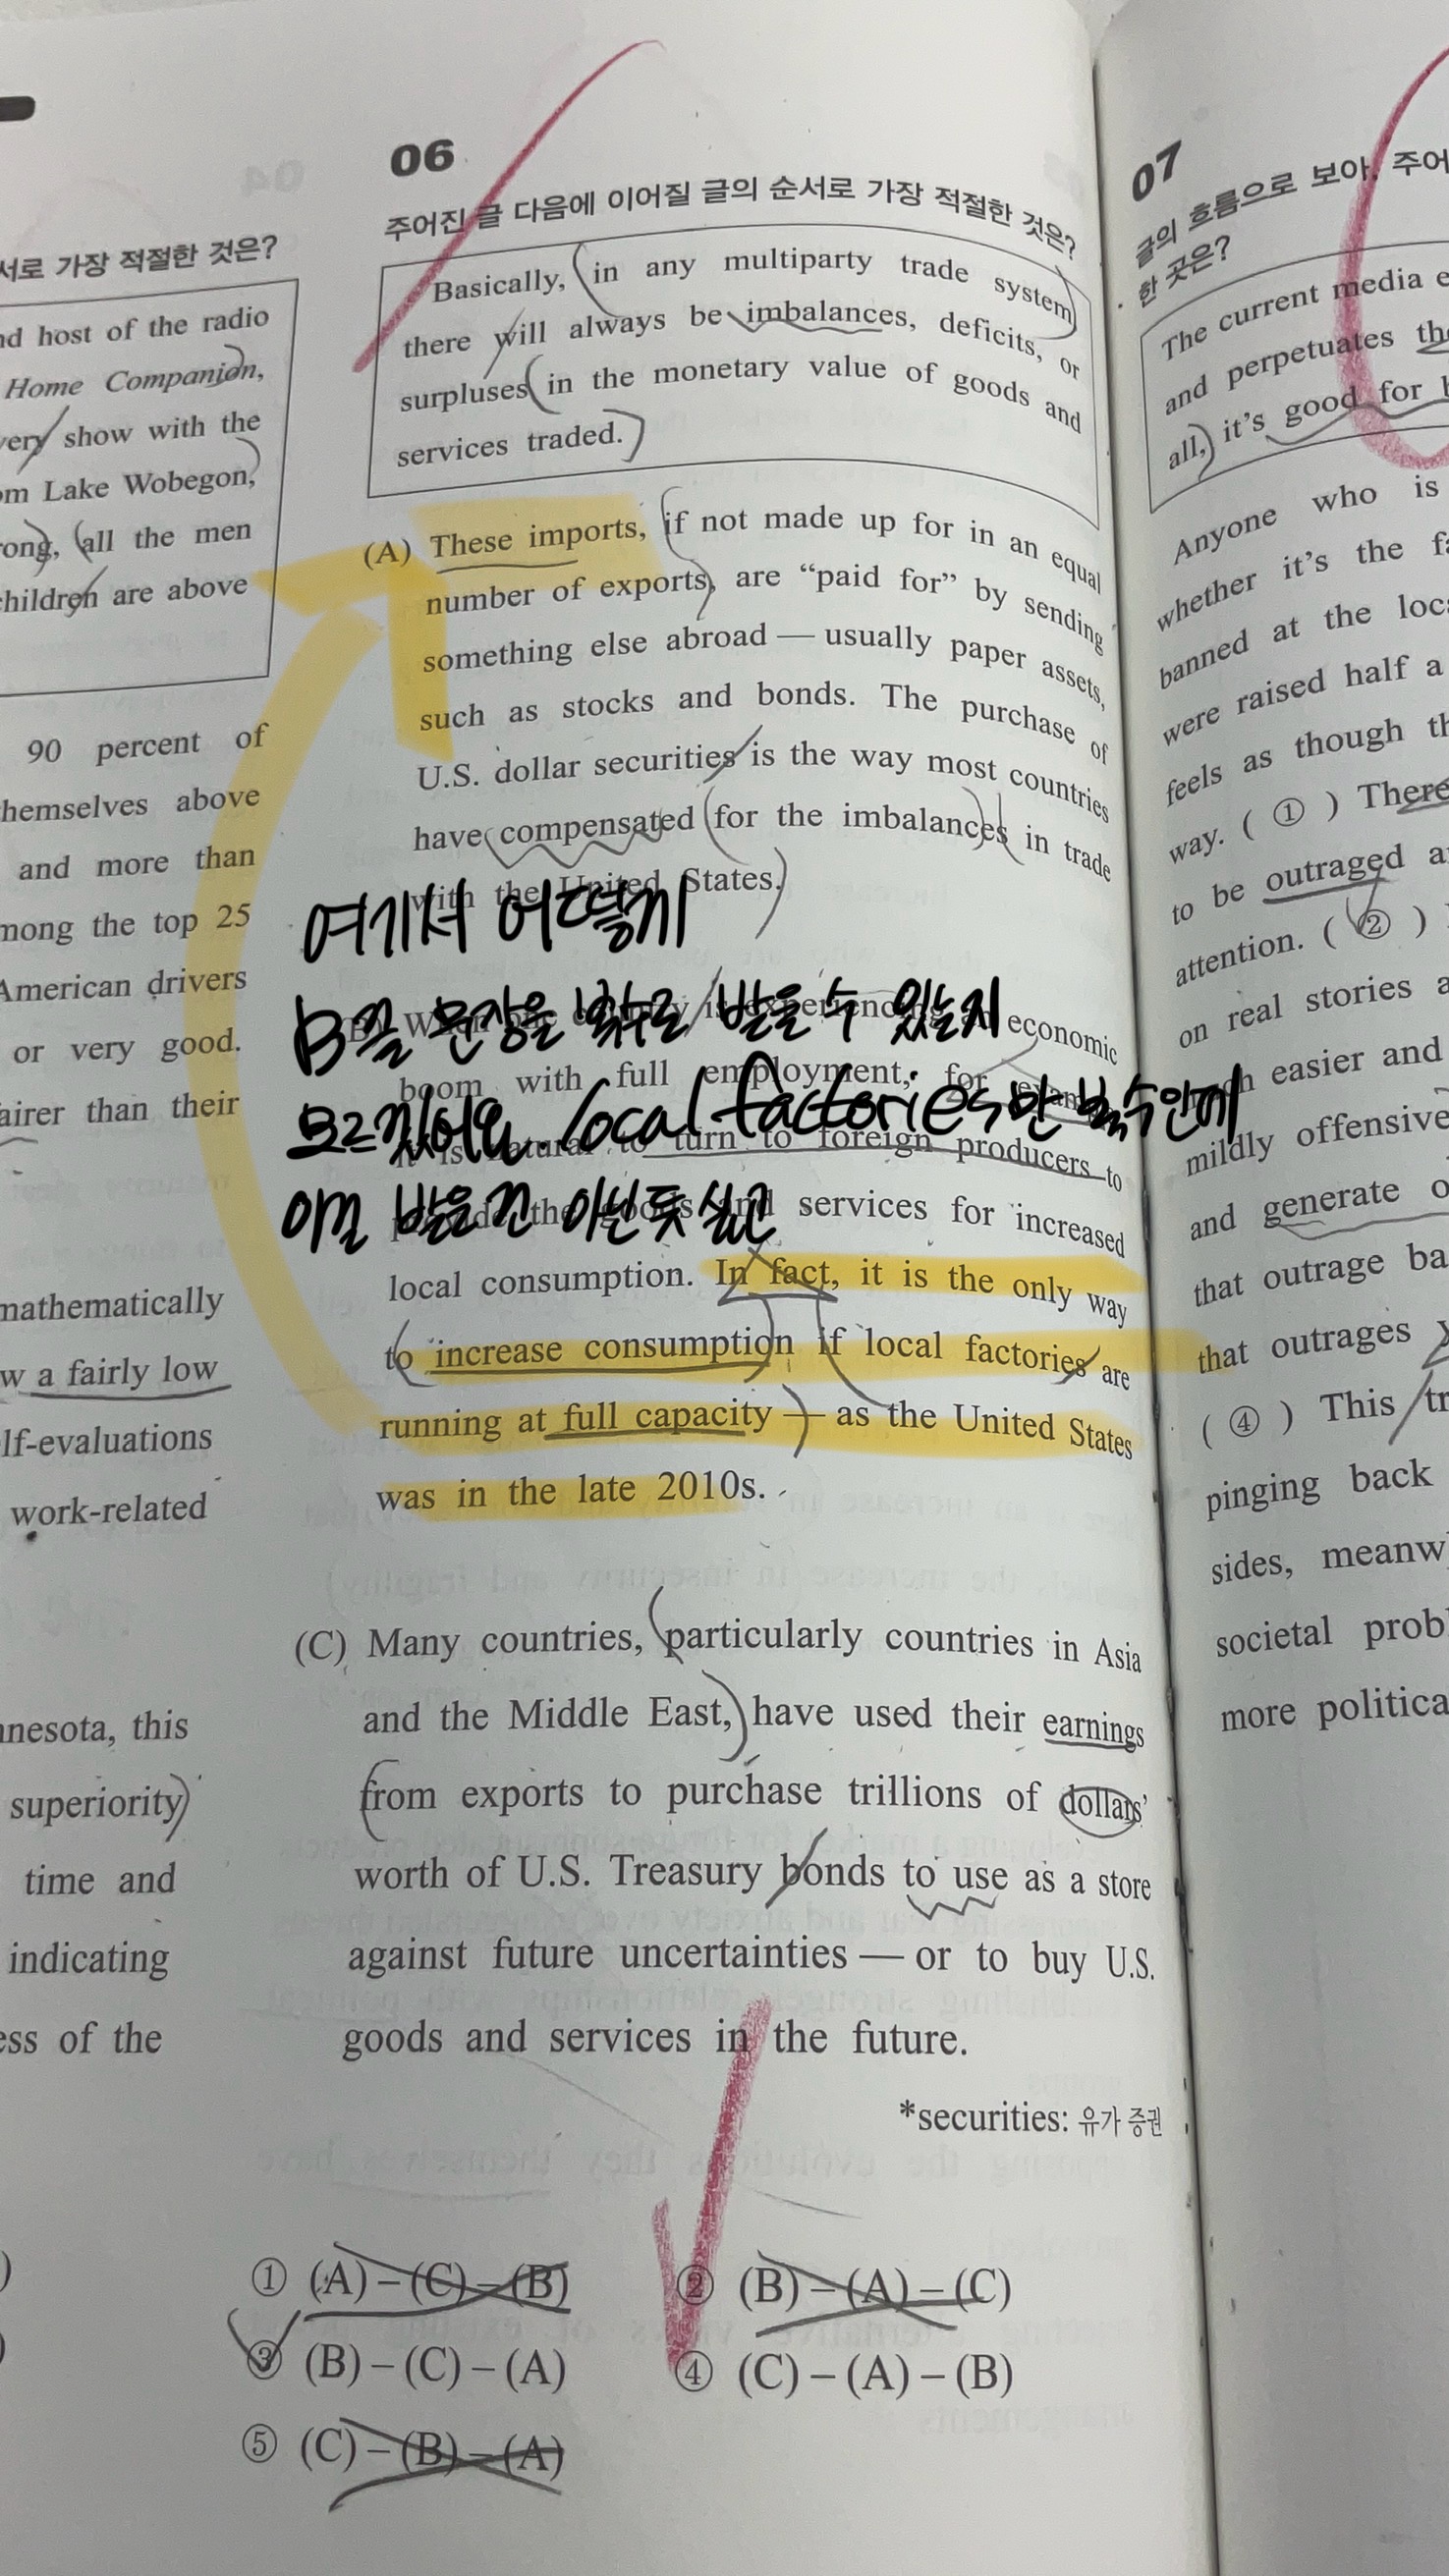 서로 가장 적절한 것은?
nd host of the radio
Home Companion,
very show with the
om Lake Wobegon,
rong, all the men
children are above
90 percent of
themselves above
and more than
mong the top 25
American drivers
or very good.
airer than their
mathematically
w a fairly low
lf-evaluations
work-related
nnesota, this
superiority
time and
indicating
ess of the
06
주어진 글 다음에 이어질 글의 순서로 가장 적절한 것은?
Basically, in any multiparty trade system
there will always be imbalances, deficits, or
surpluses in the monetary value of goods and
services traded.
(A) These imports, if not made up for in an equal
number of exports, are “paid for” by sending
something else abroad — usually paper assets,
such as stocks and bonds. The purchase of
U.S. dollar securities is the way most countries
have compensated for the imbalances in trade
with the United States.
여기서 어떻게
B끝 문장을 복수로 받을 수 있는지
모르겠어요. local factories만 복수인데
이걸 받은 건 아닌듯 싶고
is experiencing an economic
boom with full employment, for
it is natural to turn to foreign producers to
provide the goods and services for increased
local consumption. In fact, it is the only way
to increase consumption if local factories are
running at full capacity — as the United States
was in the late 2010s.
(C) Many countries, particularly countries in Asia
and the Middle East, have used their earnings
from exports to purchase trillions of dollars’
worth of U.S. Treasury bonds to use as a store
against future uncertainties — or to buy U.S.
goods and services in the future.
*securities: 유가 증권
① (A) – (C) – (B)
② (B) – (A) – (C)
③ (B) – (C) – (A)
④ (C) – (A) – (B)
⑤ (C) – (B) – (A)
07
글의 흐름으로 보아, 주어
한 곳은?
The current media e
and perpetuates the
all, it’s good for b
Anyone who is
whether it’s the fa
banned at the loca
were raised half a
feels as though th
way. ( ① ) There
to be outraged a
attention. ( ② )
on real stories a
easier and
mildly offensive
and generate o
that outrage ba
that outrages y
( ④ ) This tr
pinging back
sides, meanw
societal prob
more politica